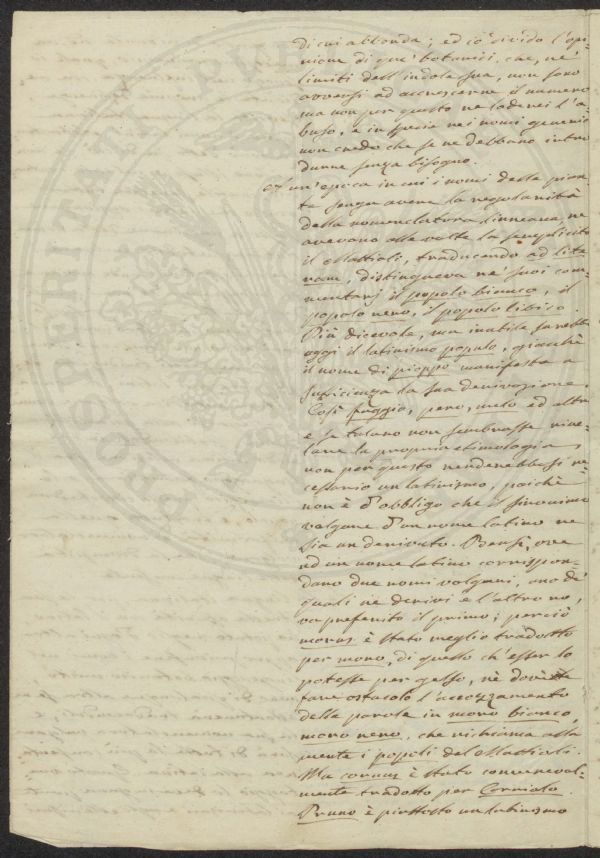 di cui abbonda; ed io divido l'opi-
nione di que' botanici, che, ne'
limiti dell'indole sua, non sono
avversi ad accrescerne il numero
ma non per questo ne loderei l'a-
buso, e in specie nei nomi generici
non credo che se ne debbano intro
durre senza bisogno.
un'epoca in cui i nomi delle pian-
te senza avere la regolarità
della nomenclatura linneana, ne
avevano alle volte la semplicità
il Mattioli, traducendo ad lite-
ram, distingueva ne' suoi com-
mentarj il popolo bianco, il
popolo nero, il popolo libico.
Più dicevole, ma inutile sarebbe
oggi il latinismo populo, giacchè
il nome di pioppo manifesta a
sufficienza la sua derivazione.
Così faggio, pero, melo ed altri
e se tutano non sembrasse rive-
lare la propria etimologia
non per questo renderebbesi ne-
cessario un latinismo, poichè
non è d'obbligo che il sinonimo
volgare d'un nome latino ne
sia un derivato. Bensì, ove
ad un nome latino corrispon-
dano due nomi volgari, uno de'
quali ne derivi e l'altro no,
va preferito il primo; perciò
morus è stato meglio tradotto
per moro, di quello ch'esser lo
potesse per gelso, nè dovette
fare ostacolo l'accozzamento
delle parole in moro bianco,
moro nero, che richiama alla
mente i popoli del Mattioli.
Ma cornus è stato convenevol-
mente tradotto per Corniolo.
Pruno è piuttosto un latinismo
PROSPERITATI PUBL